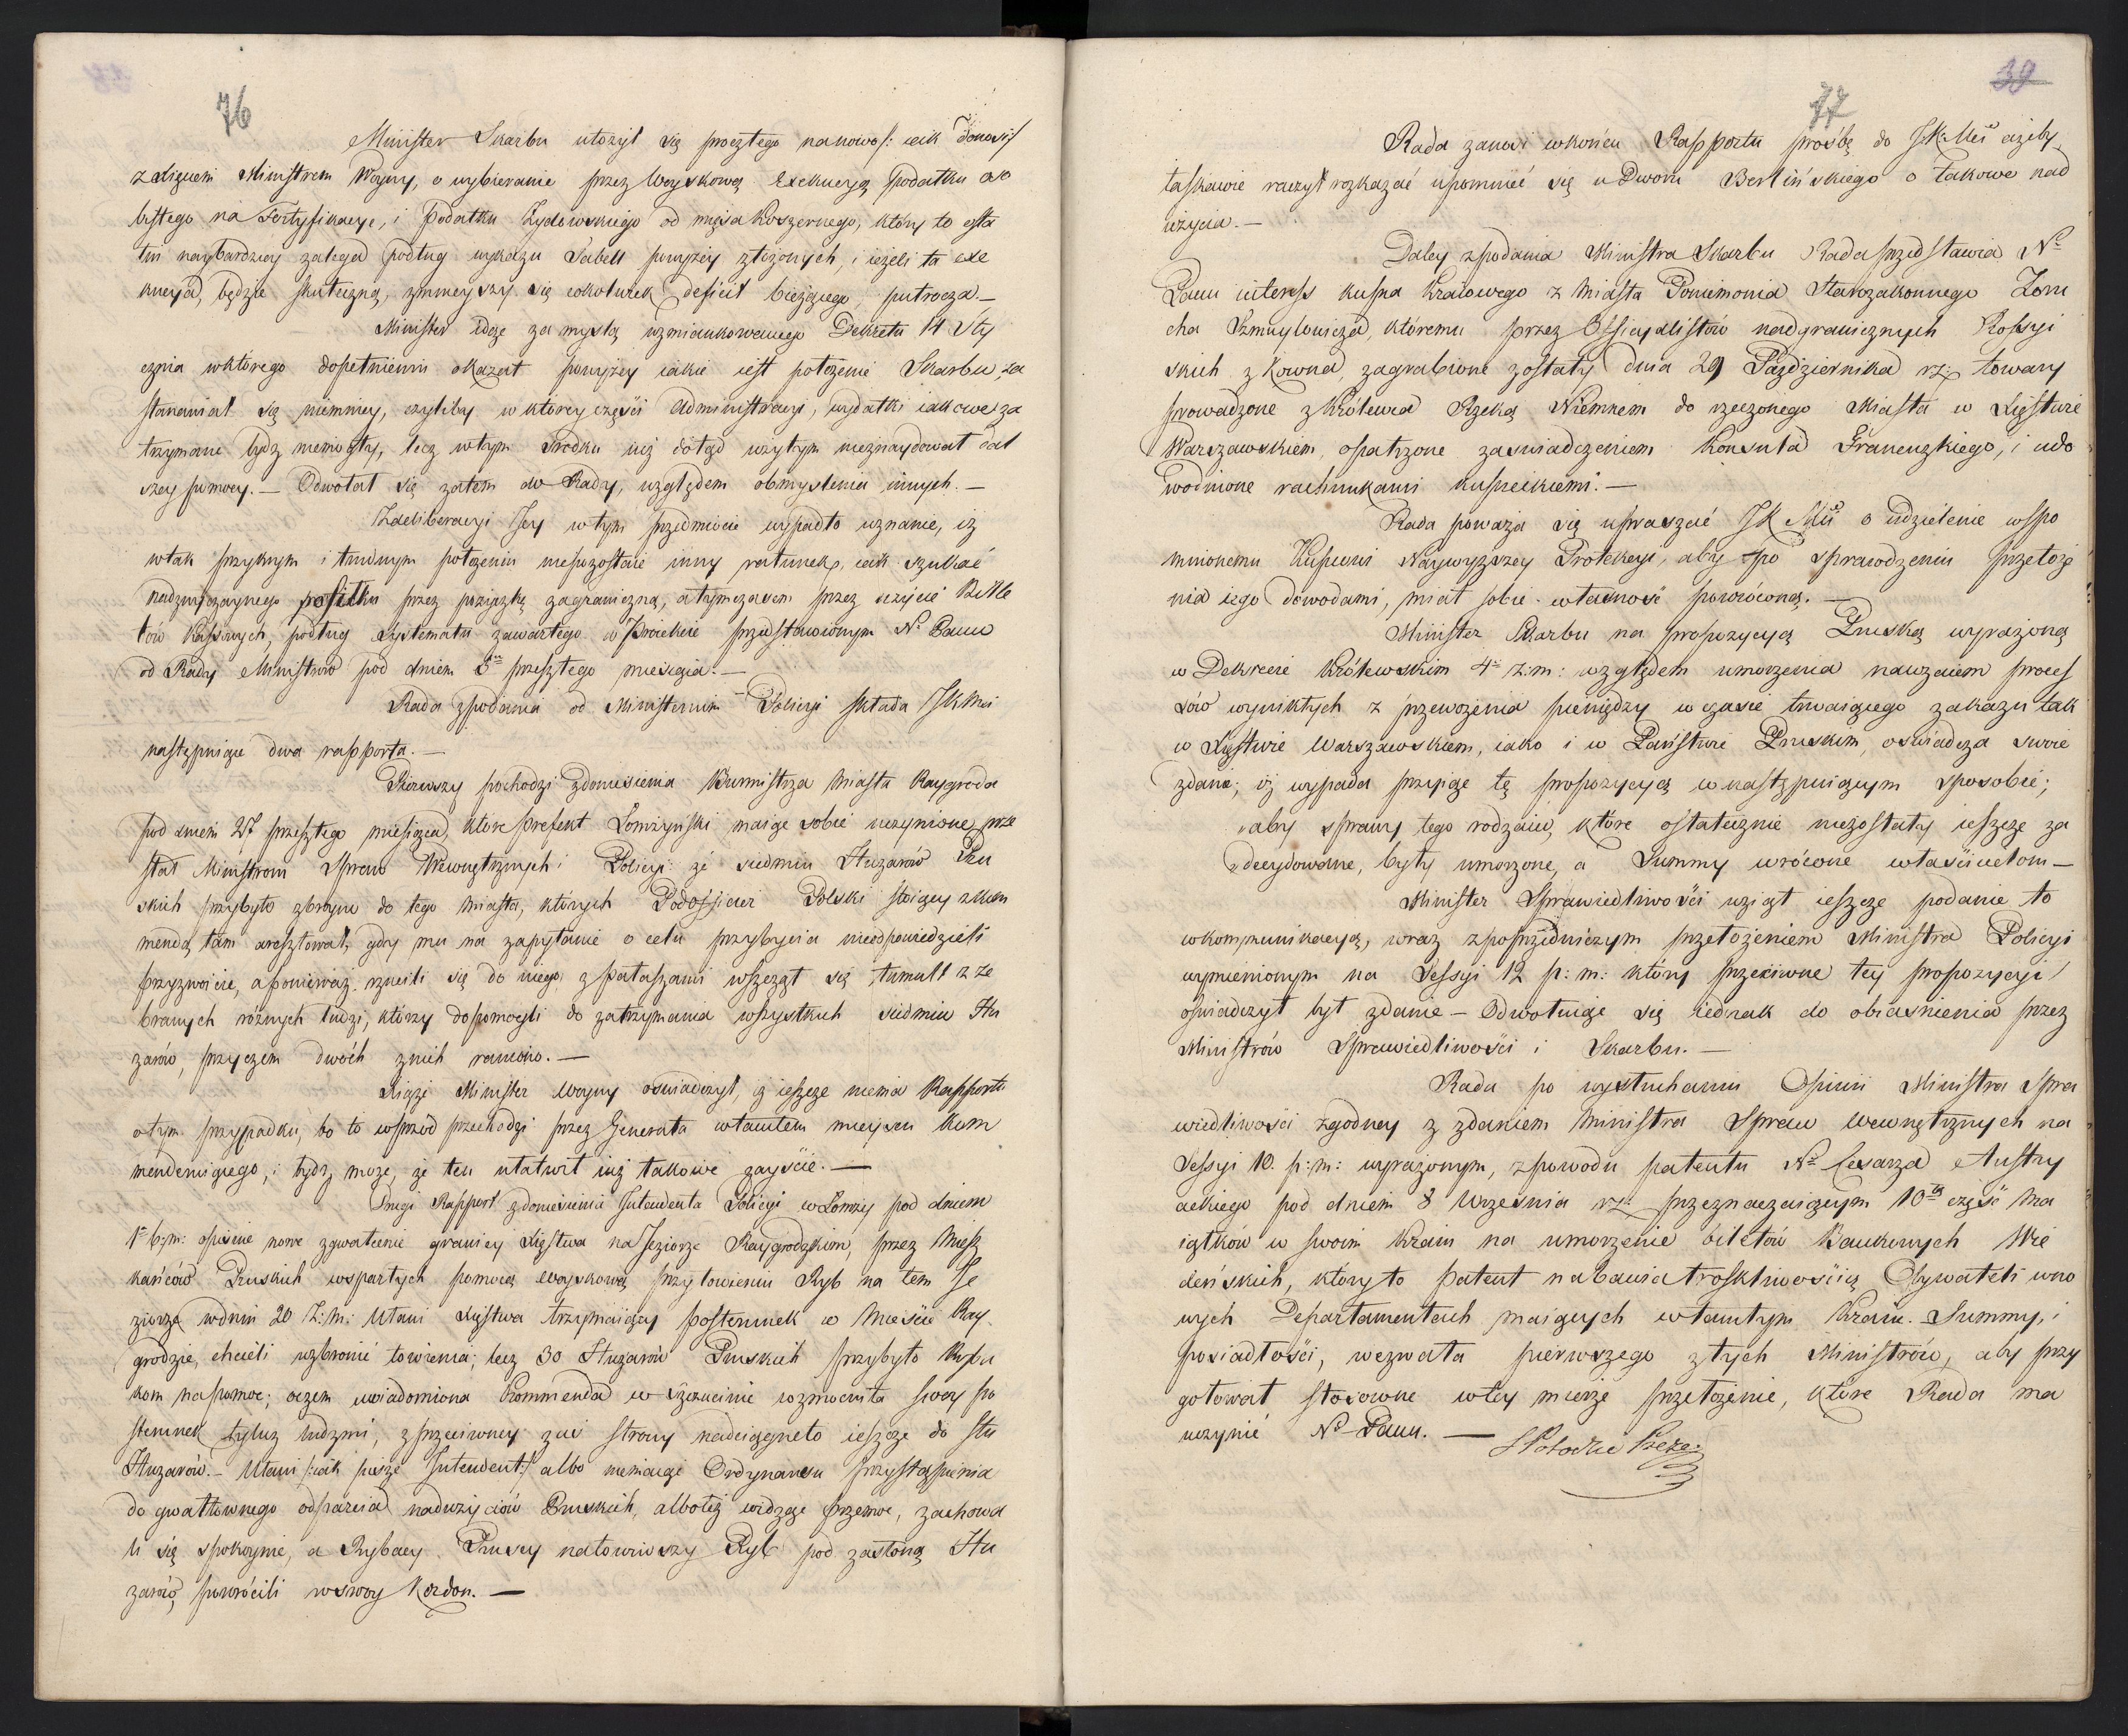 76
Minister Skarbu ułożył się procztego nanowo /: iak donosi /
z Xięciem Ministrem Woyny, o wybieranie przez Woyskową Exekucyą podatku oso
bistego na Fortyfikacye, i podatku Żydowskiego od mięsa koszernego, który to osta
tni naybardziey zalega podług wykazu Tabell powyżey złożonych, i ieżeli ta exe
kucya będzie skuteczną, zmnieyszy się cokolwiek deficit bieżącego putrocza.—
Minister idąc za myślą wzmiankowanego Dekretu 14 Sty
cznia wktórego dopełnieniu okazał powyżey iakie iest położenie Skarbu, za
stanawiał się niemniey, czyliby w którey części Administracyi, wydatki iakowe za
trzymane bydz niemogły, lecz wtym srodku iuż dotąd użytym nieznaydował dal
szey pomocy.— Odwołał się zatem do Rady, względem obmyslenia innych.—
Z deliberacyi Jey w tym przedmiocie wypadło uznanie, iż
wtak przykrym i trudnym położeniu niepozostaie inny ratunek, iak szukać
nadzwyczaynego posiłku przez pożyczkę zagraniczną, a tymczasem przez użycie Bille
tów Kassowych, podług Systematu zawartego w Proiekcie przedstawionym N. Panu
od Rady Ministrów pod dniem 8 przeszłego miesiąca.—
Rada zpodania od Ministerium Policyi składa JKMci
następuiące dwa rapporta.—
Pierwszy pochodzi zdoniesienia Burmistrza Miasta Raygroda
pod dniem 27 przeszłego miesiąca, które Prefekt Łomżyński maiąc sobie uczynione prze
słał Ministrom Spraw Wewnętrznych i Policyi: że siedmiu Huzarów Pru
skich przybyło zbroyno do tego Miasta, których Podofficer Polski stoiący zkom
mendą tam aresztował, gdy mu na zapytanie o celu przybycia nieodpowiedzieli
przyzwoicie, aponieważ rzucili się do niego zpałaszami wszczął się tumult zze
branych różnych ludzi, którzy dopomogli do zatrzymania wszystkich siedmiu Hu
zarów, przyczem dwóch znich raniono.—
Xiąże Minister Woyny oświadczył, iż ieszcze niema Rapportu
otym przypadku, bo to wprzód przechodzi przez Generała wtamtem mieyscu kom
menderuiącego, i bydz może, że ten ułatwił iuż takowe zayście.—
Drugi Rapport zdoniesienia Intendenta Policyi w Łomży pod dniem
1 b:m: opisuie nowe zgwałcenie granicy Xięstwa na Jeziorze Raygrodzkiem, przez Miesz
kańców Pruskich wspartych pomocą woyskową przy łowieniu Ryb na tem Je
ziorze wdniu 20 z:m: Ułani Xięstwa trzymaiący posterunek w Mieście Ray-
grodzie, chcieli wzbronić łowienia; lecz 30 Huzarów Pruskich przybyło Ryba
kom napomoc; oczem uwiadomiona Kommenda w Szczucinie wzmocniła swoy po
sterunek tyluż ludzmi, zprzeciwney zaś strony nadciągnęło ieszcze do stu
Huzarów.— Ułani /: iak pisze Intendent :/ albo niemaiąc Ordynansu przystąpienia
do gwałtownego odparcia nadużyciów Pruskich, alboteż widząc przemoc, zachowa
li się spokoynie, a Rybacy Pruscy nałowiwszy Ryb pod zasłoną Hu
zarów, powrócili wswoy Kordon.—
39
77
Rada zanosi wkońcu Rapportu prośbę do JKMci ażeby
łaskawie raczył rozkazać upomnieć się u Dworu Berlińskiego o takowe nad
użycia.—
Daley zpodania Ministra Skarbu Rada przedstawia N.
Panu interess kupca kraiowego z Miasta Poniemonia Starozakonnego Zoru
cha Szmuylowicza, któremu przez Officyalistów nadgranicznych Rossyi
skich z Kowna, zagrabione zostały dnia 29 Października r.z. towary
prowadzone z Królewca Rzeką Niemnem do rzeczonego Miasta w Xięstwie
Warszawskiem, opatrzone zaswiadczeniem Konsula Francuzkiego, i udo
wodnione rachunkami kupieckiemi.—
Rada poważa się upraszać JKMci o udzielenie wspo
mnionemu Kupcowi Naywyższey Protekcyi, aby po sprawdzeniu przełoże
nia iego dowodami, miał sobie własność powróconą.—
Minister Skarbu na propozycyą Pruską wyrażoną
w Dekrecie Królewskim 4 z:m: względem umorzenia nawzaiem proces
sów wynikłych z przewożenia pieniędzy w czasie trwaiącego zakazu tak
w Xięstwie Warszawskiem, iako i w Państwie Pruskim, oświadcza swoie
zdanie; iż wypada przyiąc tę propozycyą wnastępuiącym sposobie;
„aby sprawy tego rodzaiu, które ostatecznie niezostały ieszcze za
„decydowane, były umorzone, a Summy wrócone właścicielom—
Minister Sprawiedliwości wziął ieszcze podanie to
wkommunikacyą, wraz zpoprzedniczym przełożeniem Ministra Policyi
wymienionym na Sessyi 12 p:m: który przeciwne tey propozycyi
oświadczył był zdanie — Odwołuiąc się iednak do obiasnienia przez
Ministrów Sprawiedliwości i Skarbu.—
Rada po wysłuchaniu Opinii Ministra Spra
wiedliwości zgodney z zdaniem Ministra Spraw Wewnętrznych na
Sessyi 10. p:m: wyrażonym, zpowodu patentu N. Cesarza Austry
ackiego pod dniem 8 Września r.z. przeznaczaiącym 10tą część Ma
iątków w swoim Kraiu na umorzenie biletów Bankowych Wie
deńskich, który to patent nabawia troskliwością Obywateli wno
wych Departamentach maiących wtamtym Kraiu Summy, i
posiadłości, wezwała pierwszego ztych Ministrów, aby przy
gotował stosowne wtey mierze przełożenie, które Rada ma
uczynić N. Panu.—
S Potocki Prezes